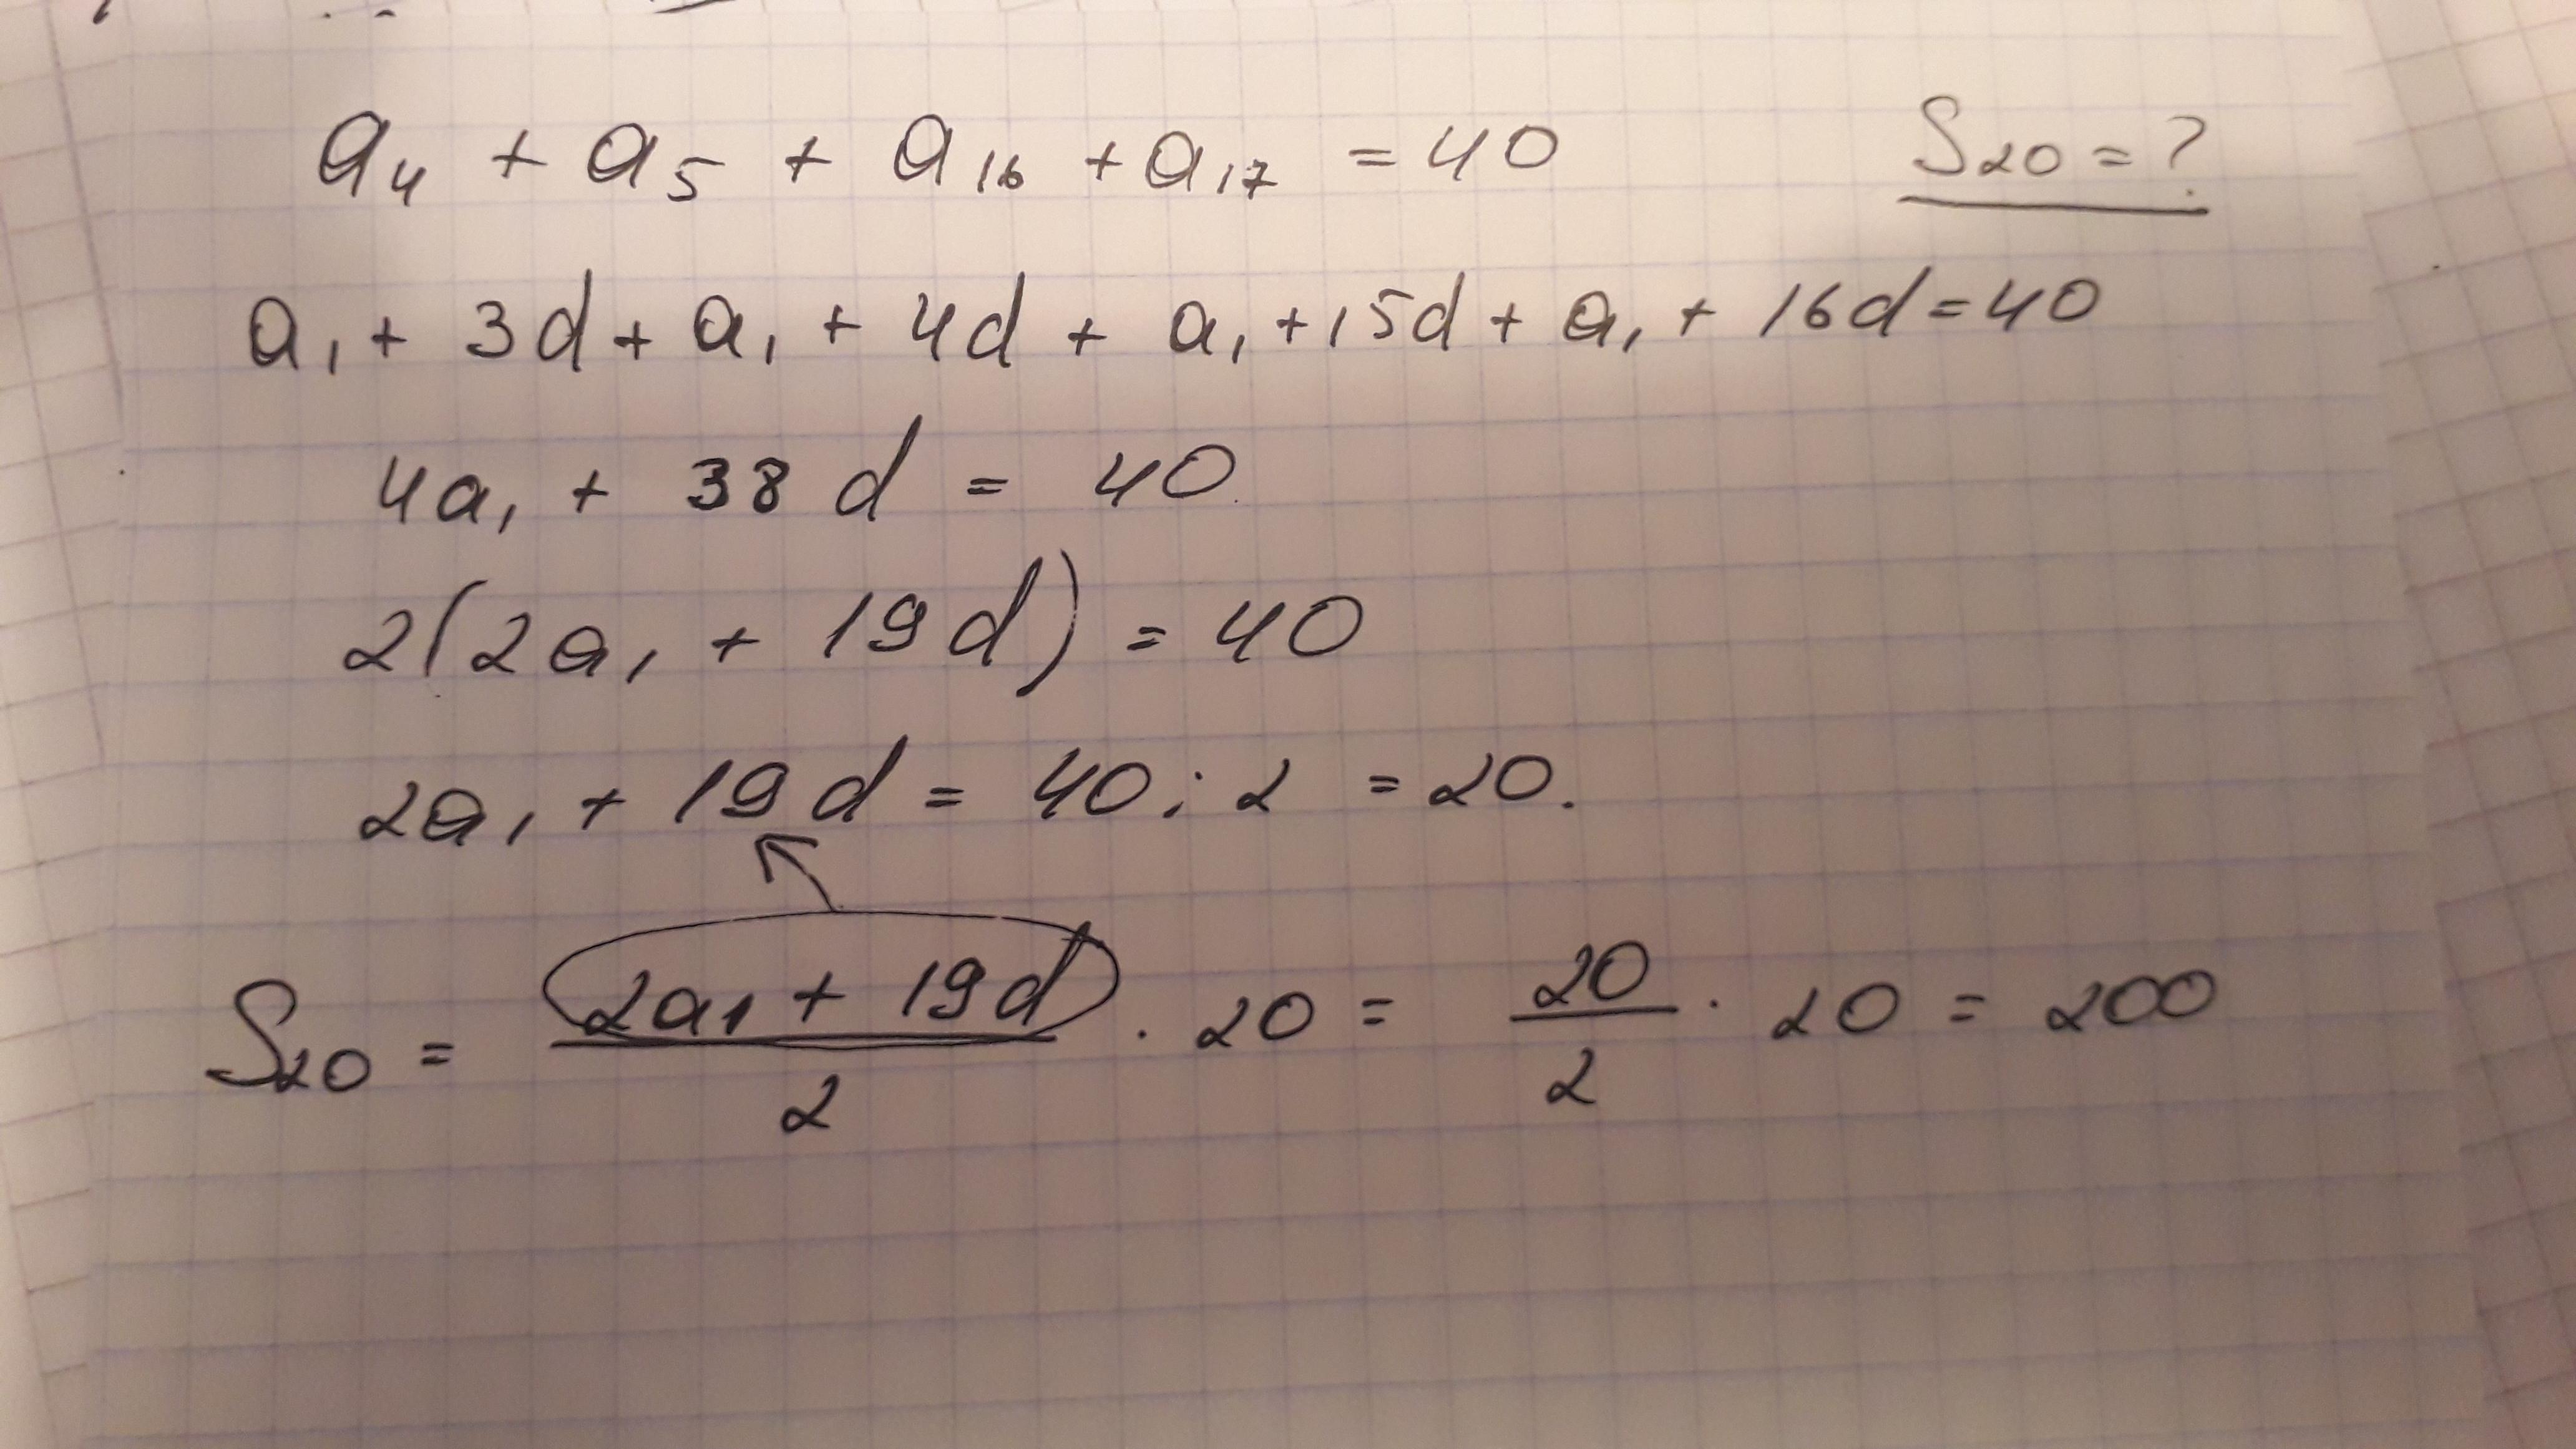 a₄ + a₅ + a₁₆ + a₁₇ = 40 S₂₀ = ?
a₁ + 3d + a₁ + 4d + a₁ + 15d + a₁ + 16d = 40
4a₁ + 38 d = 40
2(2a₁ + 19d) = 40
2a₁ + 19d = 40 : 2 = 20.
S₂₀ = (2a₁ + 19d)/2 · 20 = 20/2 · 20 = 200